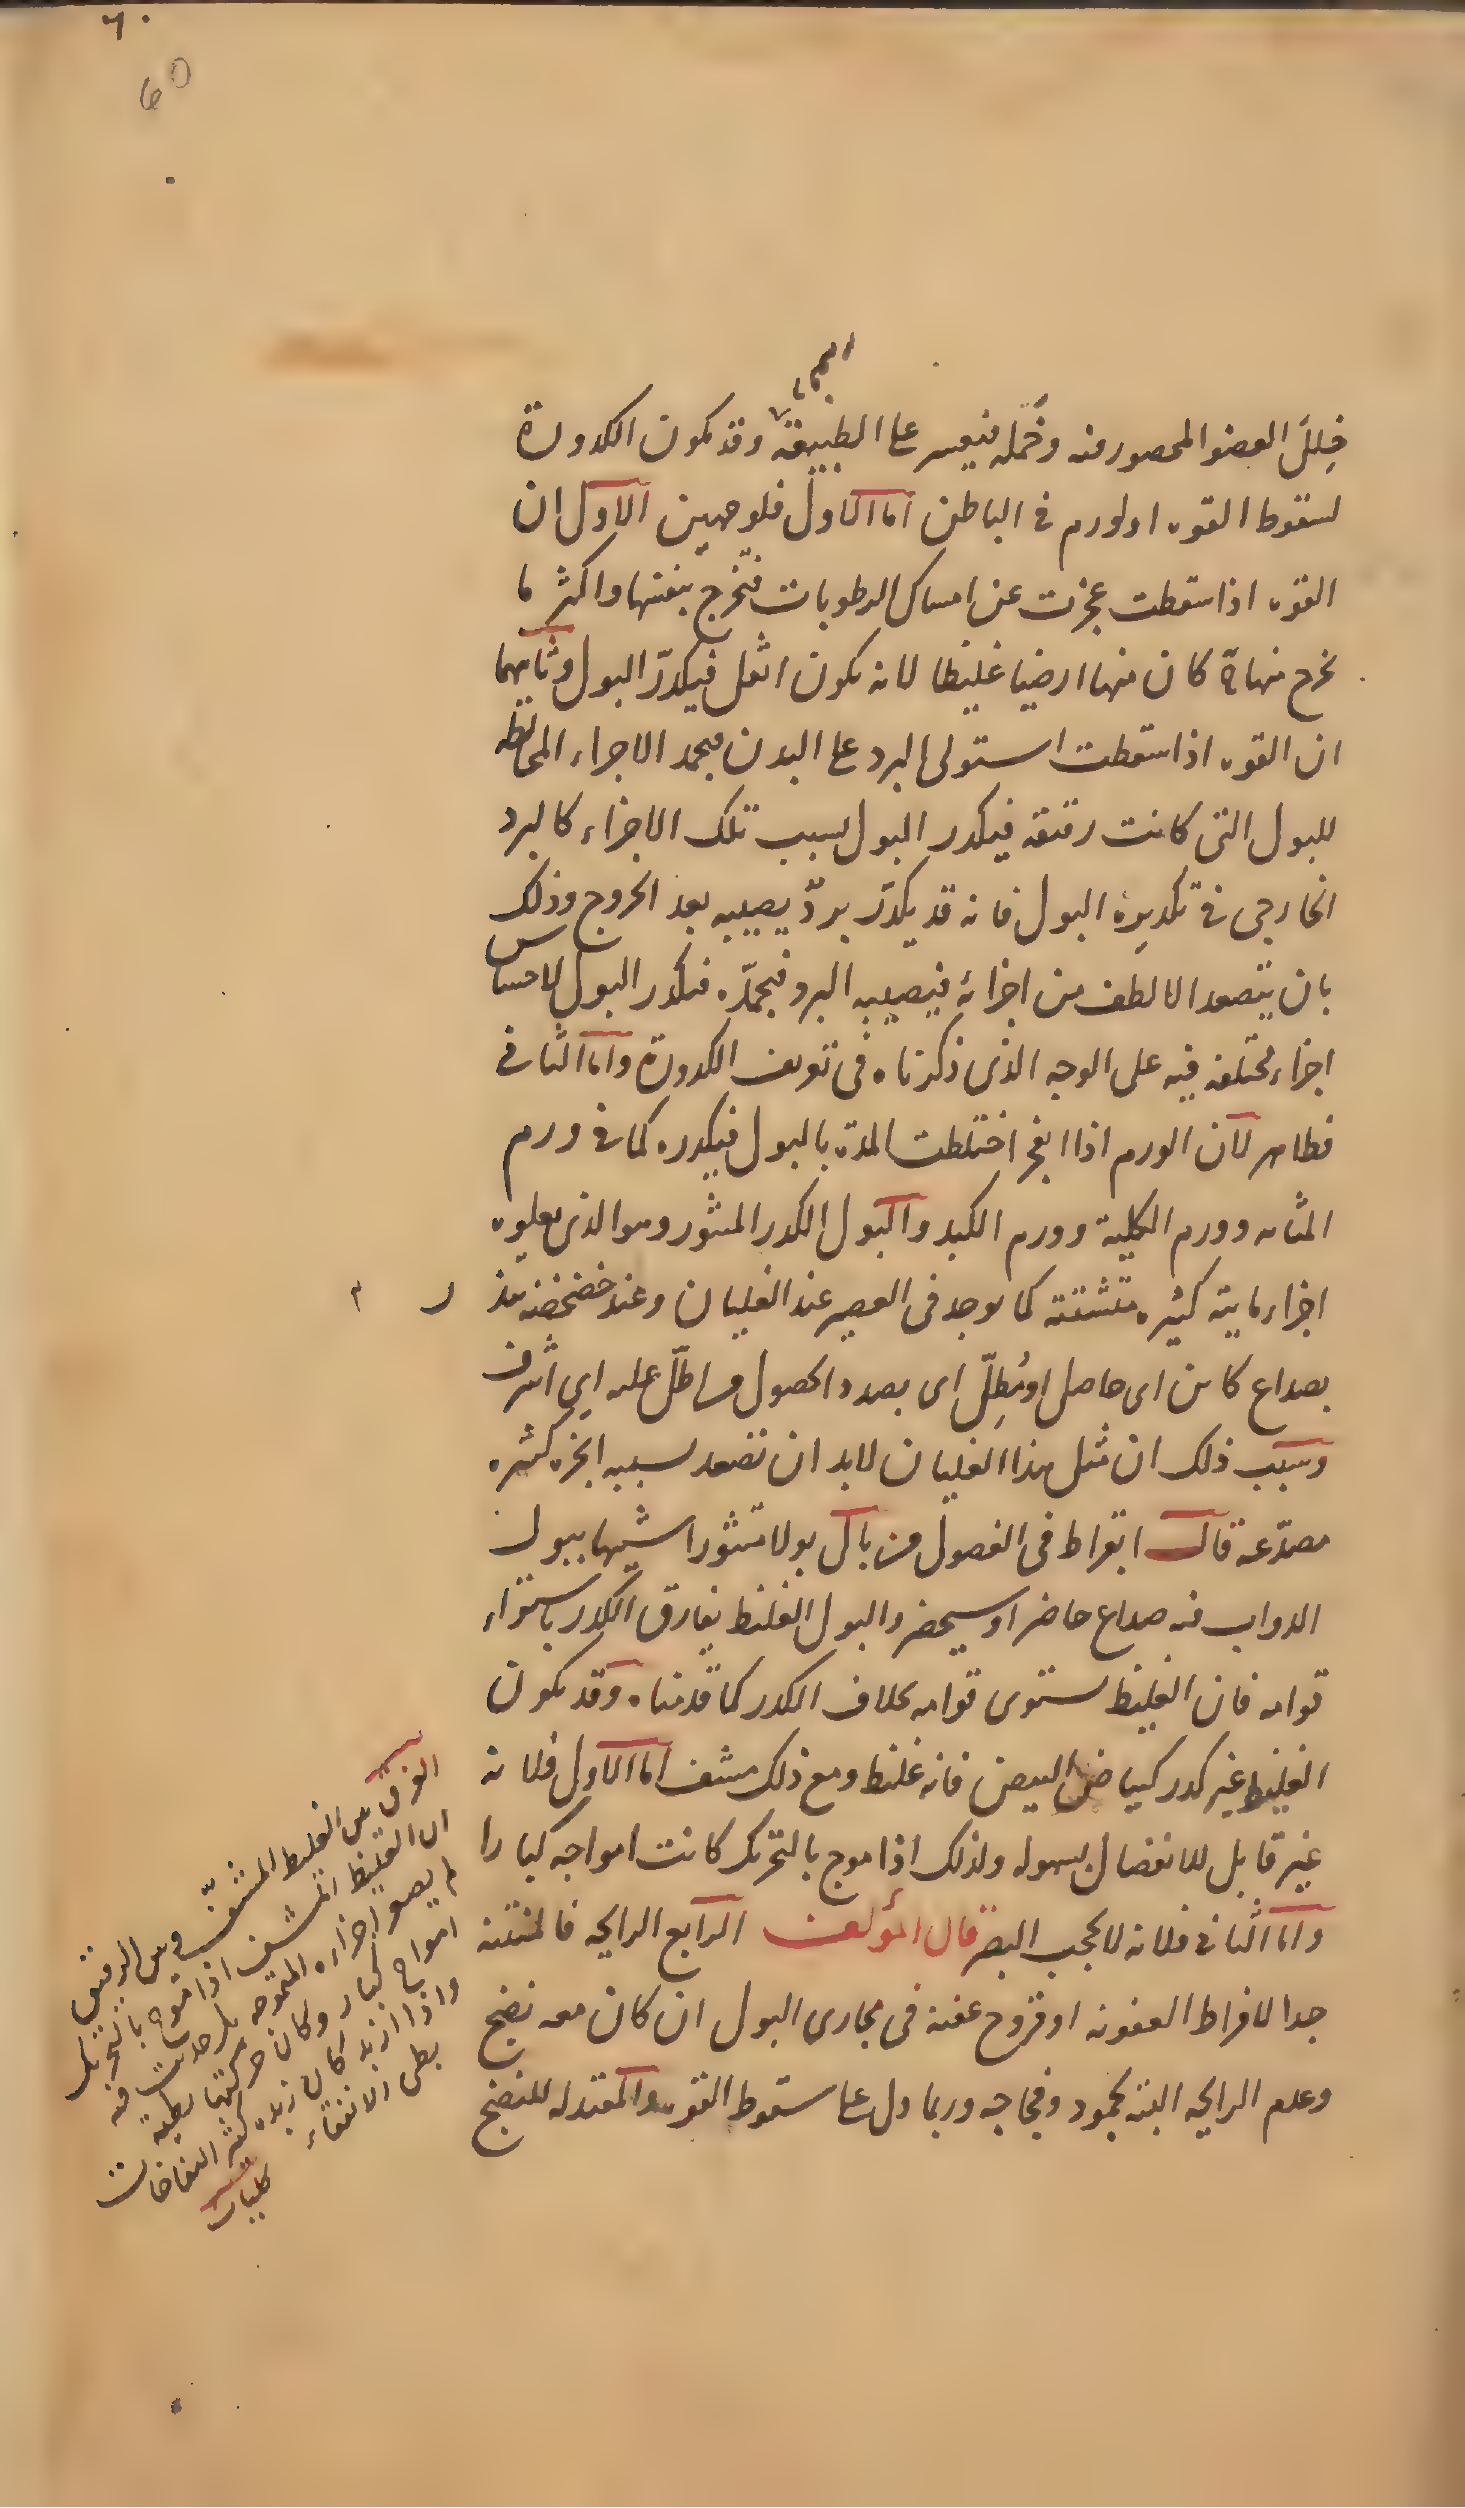 ٦٠
60
خلل العضو المحصور فيه وخمله فيعسر على الطبيعة وقد يكون الكدورة
لسقوط القوه او لورم فى الباطن اما الاول فلوجهين الاول ان
القوه اذا سقطت عجزت عن امساك الرطوبات فتخرج بنفسها واكثر ما
يخرج منها ما كان منها ارضيا غليظا لانه يكون اثقل فيكدّر البول وثانيهما
ان القوه اذا سقطت استولى البرد على البدن فيجمد الاجزاء المخالطه
للبول التى كانت رقيقه فيكدر البول بسبب تلك الاجزاء كالبرد
الخارجى فى تكديره البول فانه قد يكدّر بردٌ يصيبه بعد الخروج وذلك
بان يتصعد الالطف من اجزائه فيصيبه البرد فيجمدّه فيكدر البول لاحتباس
اجزاء مختلفه فيه على الوجه الذى ذكرناه فى تعريف الكدورة واما الثانى
فظاهر لان الورم اذا انفجر اختلطت المدة بالبول فيكدره كما فى ورم
المثانه وورم الكلية وورم الكبد والبول الكدر المثور وهو الذى يعلوه
اجزاء مايية كثيره متشتته كما يوجد فى العصير عند الغليان وعند خضخضه ينذر
بصداع كائن اى حاصل او مُطِلّ اى بصدد الحصول من اطلّ عليه اى اشرف
وسبب ذلك ان مثل هذا الغليان لابد ان تصعد بسببه ابخره كثيره
مصدّعه قال ابقراط فى الفصول من بال بولا متثورا شبيها ببول
الدواب فبه صداع حاضر او سيحضر والبول الغليظ يفارق الكدر باستواء
قوامه فان الغليظ يستوى قوامه بخلاف الكدر كما قدمناه وقد يكون
الغليظ غير كدر كبياض البيض فانه غليظ ومع ذلك مشف اما الاول فلانه
غير قابل للانفصال بسهوله ولذلك اذا موج بالتحريك كانت امواجه كبارا
واما الثانى فلانه لا يحجب البصر قال المؤلف الرابع الرايحه فالمنتنه
جدا لافراط العفونه او قروح عفنه فى مجارى البول ان كان معه نضج
وعدم الرايحه البته لجمود وفجاجه وربما دل على سقوط القوه والمعتدله للنضج
الفرق بين الغليظ المشف وبين الرقيق
ان الغليظ المشف اذا تموج بالتحريك
لم يصغر اجزاءه المتموجه بل حدثت فيه
امواج كبار وكان حركتها بطيئه
واذا ازبد كان زبده كثير النفاخات
بطى الانفقاء
كليات